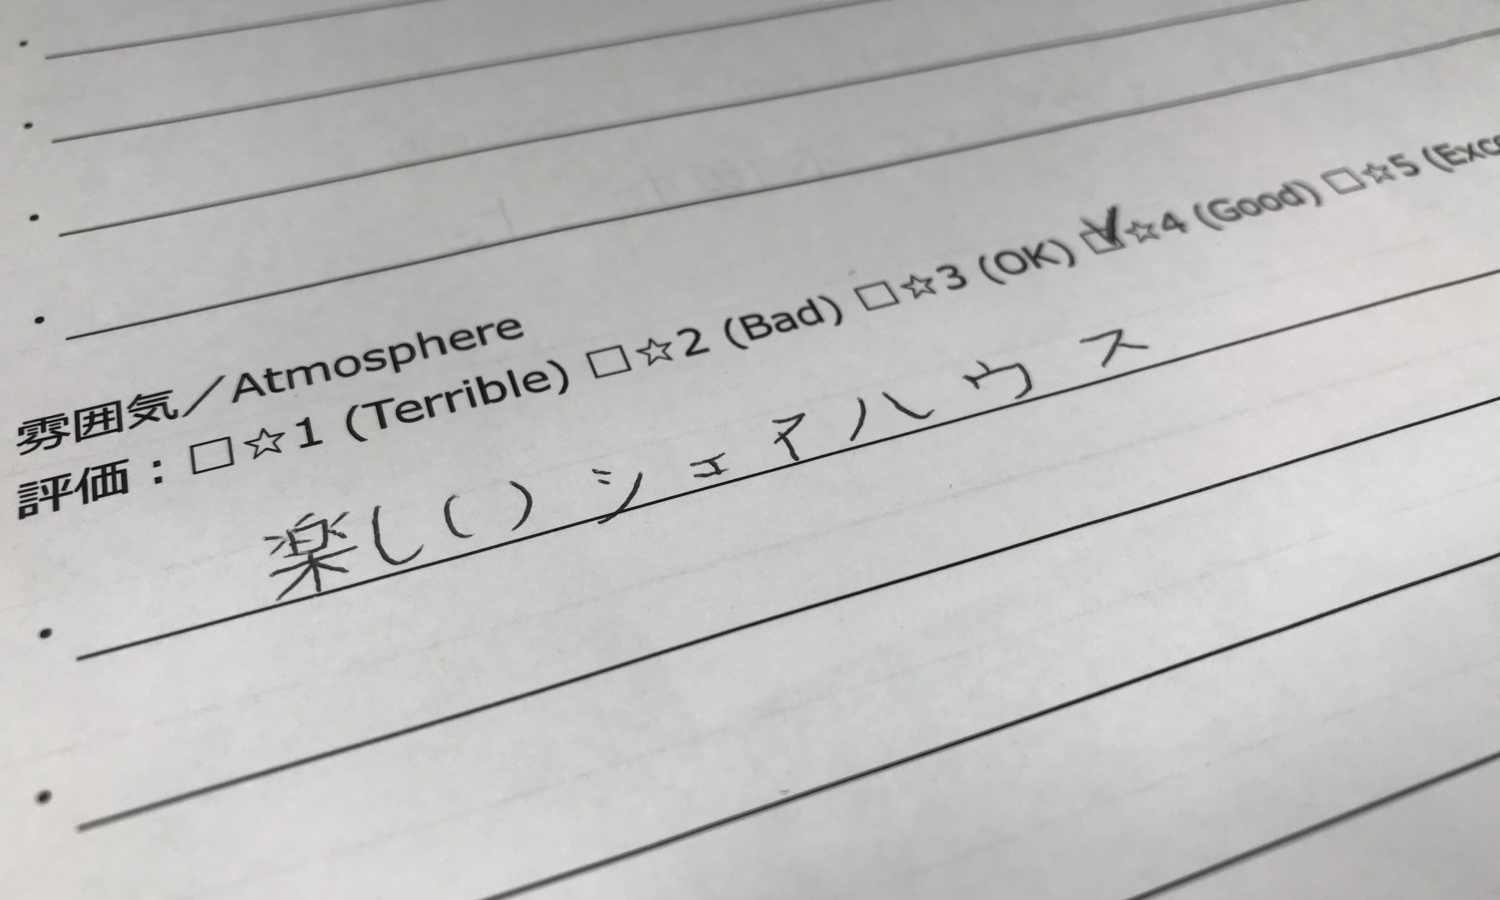 雰囲気／Atmosphere
評価：□☆1 (Terrible) □☆2 (Bad) □☆3 (OK) ☑☆4 (Good) □☆5
楽しいシェアハウス